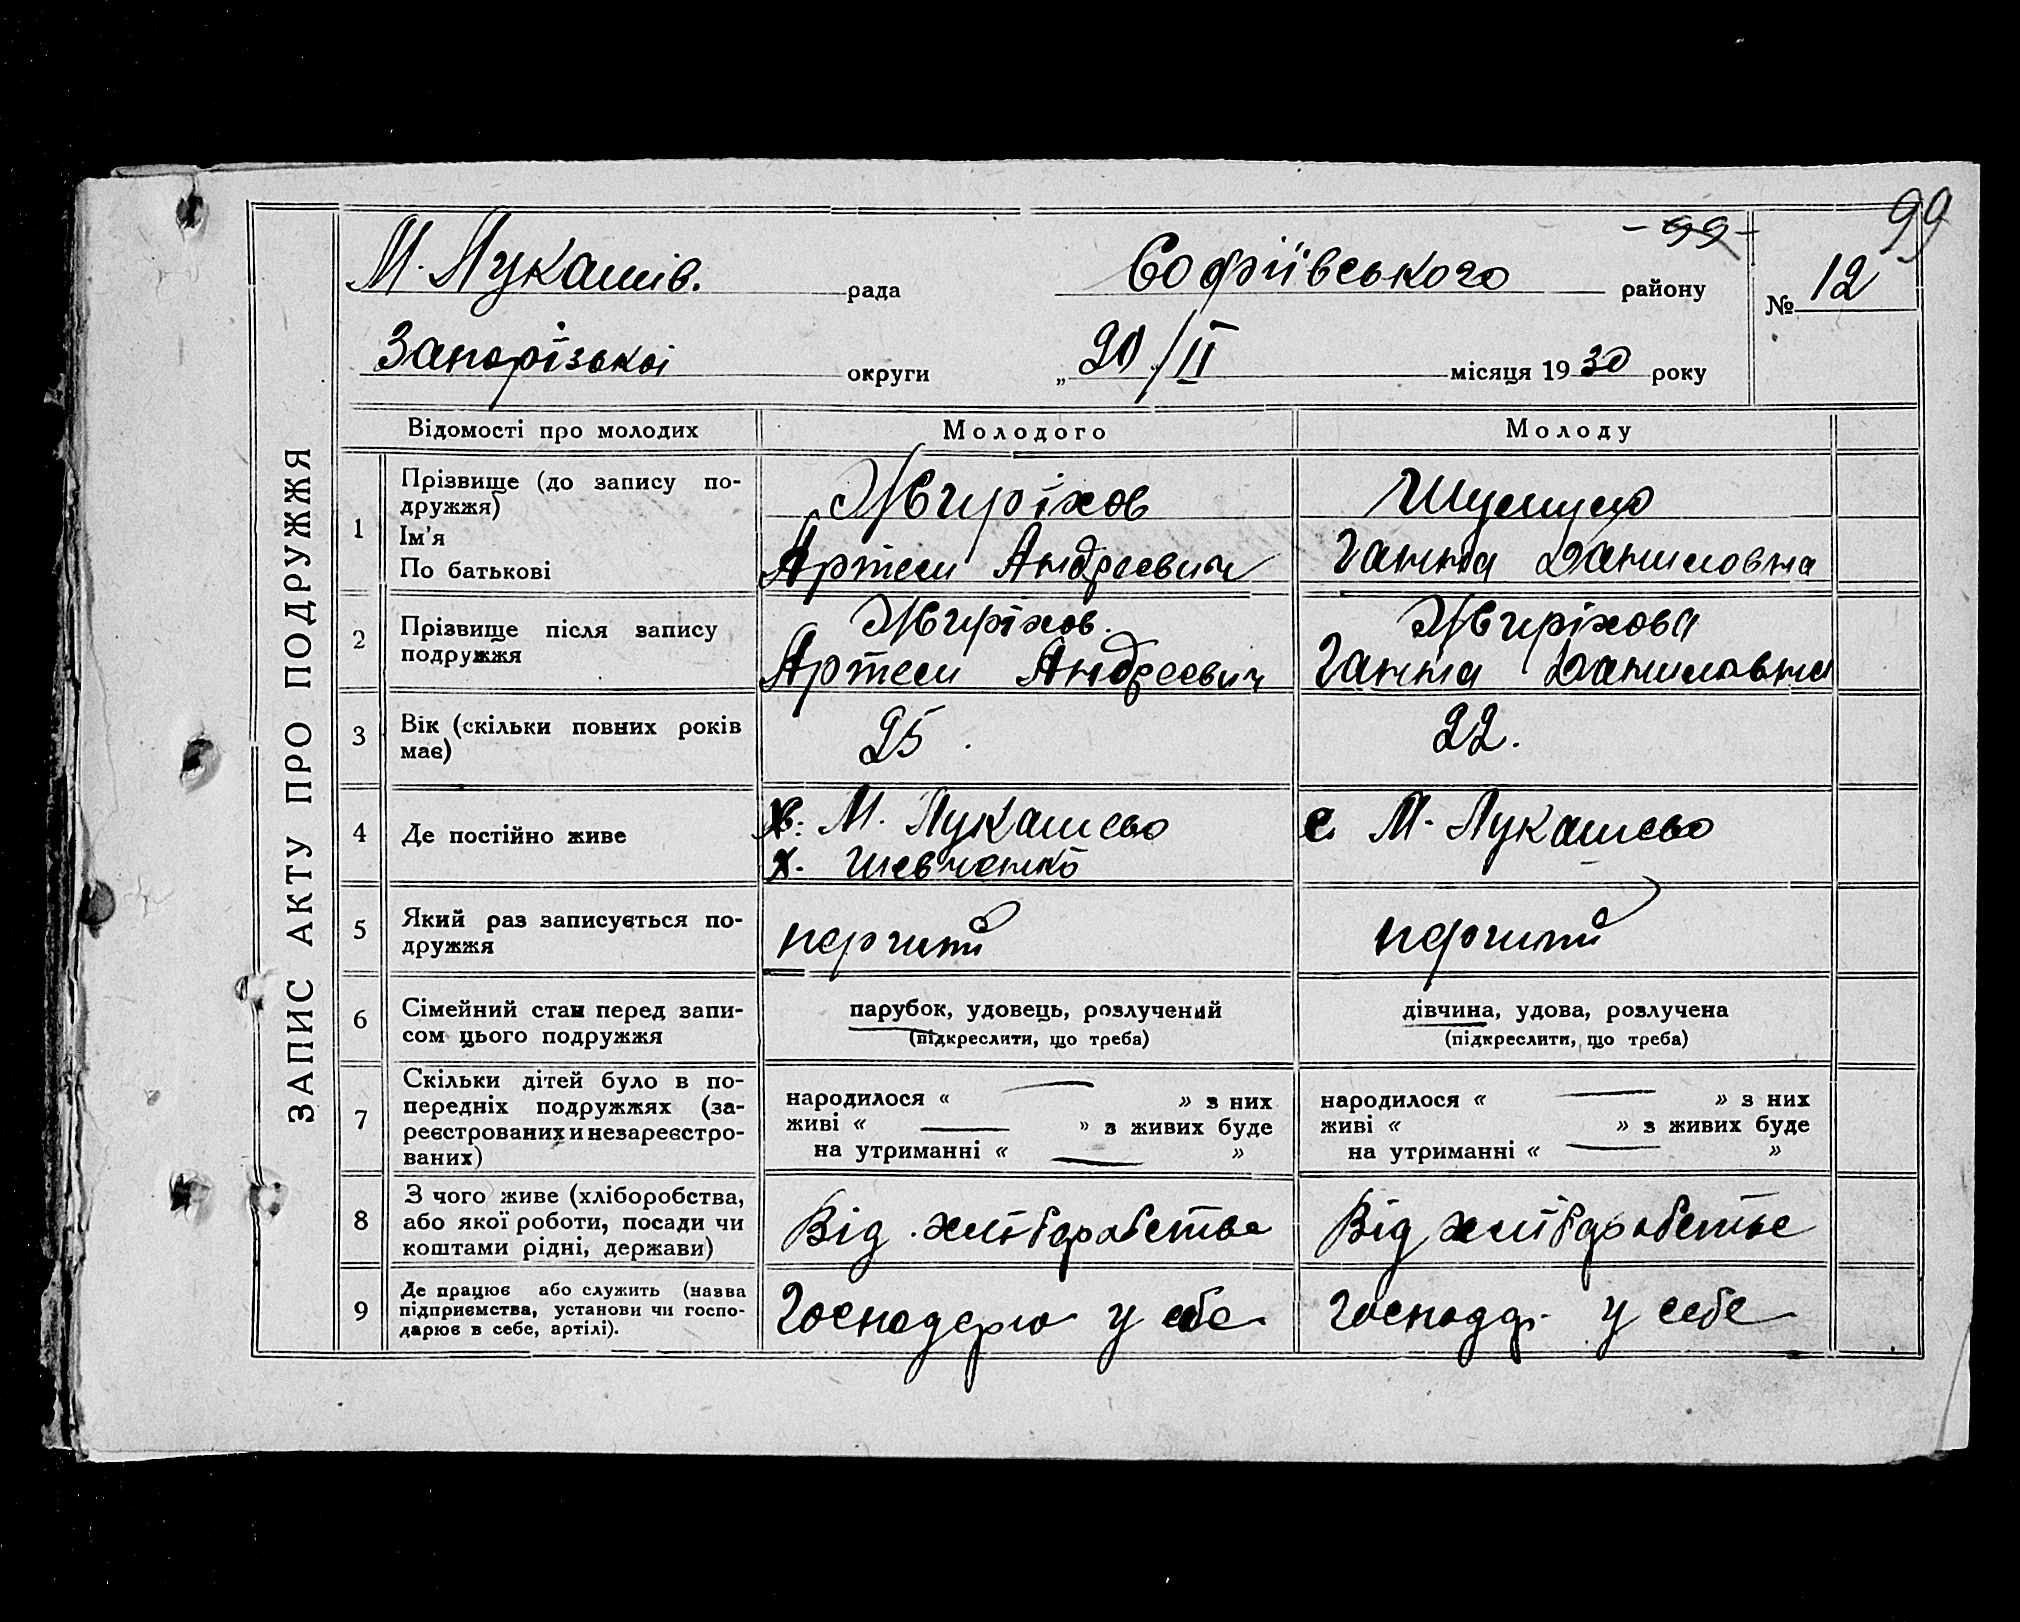 99
М. Лукашів. рада Софіївського району
- 99 -
№ 12
Запорізькоі округи „ 20/II місяця 1930 року
ЗАПИС АКТУ ПРО ПОДРУЖЖЯ
Відомості про молодих Молодого Молоду
1 Прізвище (до запису по-
дружжя)
Ім'я
По батькові
Жвиріхов
Артем Андреевич
Ганна Даниловна
2 Прізвище після запису
подружжя
Жвиріхов.
Артем Андреевич
Жвиріхова
Ганна Даниловна
3 Вік (скільки повних років
має)
25.
22.
4 Де постійно живе
М. Лукашево
х. Шевченко
с. М. Лукашево
5 Який раз записується по-
дружжя
перший
перший
6 Сімейний стан перед запи-
сом цього подружжя
парубок, удовець, розлучений
(підкреслити, що треба)
дівчина, удова, розлучена
(підкреслити, що треба)
7 Скільки дітей було в по-
передніх подружжях (за-
реєстрованих и незареєстро-
ваних)
народилося « — » з них
живі « — » з живих буде
на утриманні « — »
народилося « — » з них
живі « » з живих буде
на утриманні « — »
8 З чого живе (хліборобства,
або якої роботи, посади чи
коштами рідні, держави)
Від хліборобства
Від хліборобства
9 Де працює або служить (назва
підприємства, установи чи госпо-
дарює в себе, артілі).
Господарю у себе
Господар. у себе